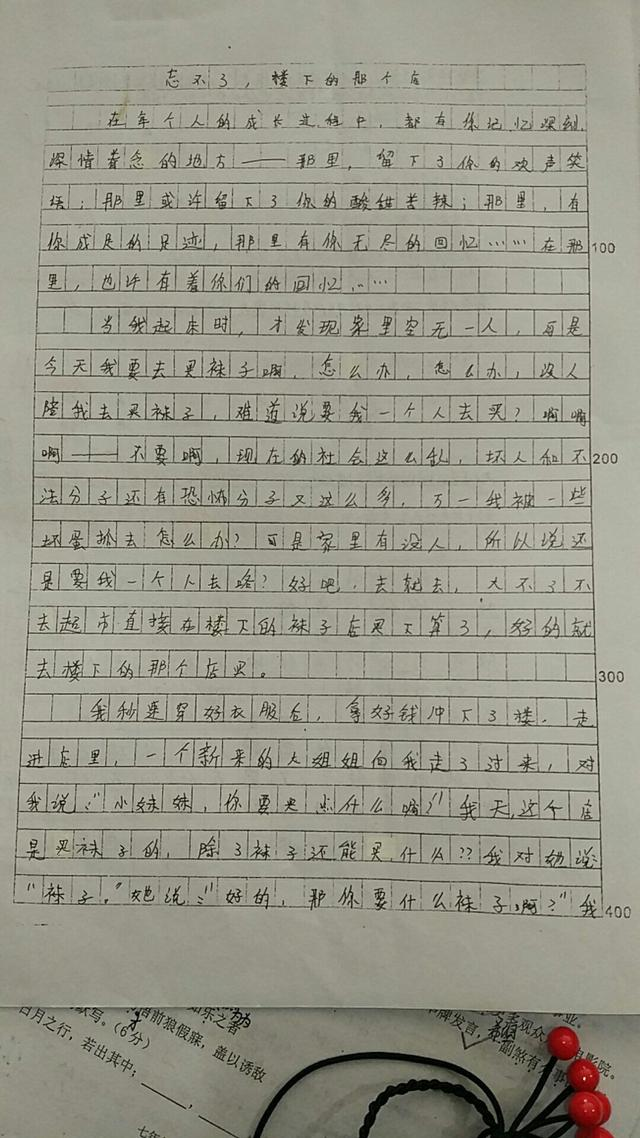 忘不了，楼下的那个店
在每个人的成长过程中，都有你记忆深刻，
深情着念的地方——那里，留下了你的欢声笑
语；那里或许留下了你的酸甜苦辣；那里，有
你成长的足迹，那里有你无尽的回忆……在那
里，也许有着你们的回忆……
当我起床时，才发现家里空无一人，可是
今天我要去买袜子啊，怎么办，怎么办，没人
陪我去买袜子，难道说要我一个人去买？啊啊
啊——不要啊，现在的社会这么乱，坏人和不
法分子还有恐怖分子又这么多，万一我被一些
坏蛋抓去怎么办？可是家里有没人，所以说还
是要我一个人去咯？好吧，去就去，大不了不
去超市直接在楼下的袜子店买下算了，好的就
去楼下的那个店买。
我秒速穿好衣服后，拿好钱冲下了楼，走
进店里，一个新来的大姐姐向我走了过来，对
我说：“小妹妹，你要买点什么啊？”我天，这个店
是买袜子的，除了袜子还能买什么？？我对她说：
“袜子。”她说：“好的，那你要什么袜子啊？”我
100
200
300
400
日月之行，若出其中；____，____
(6分)
前狼假寐，盖以诱敌
乐之者
牌发言，
观众
影院。
煞有
七年